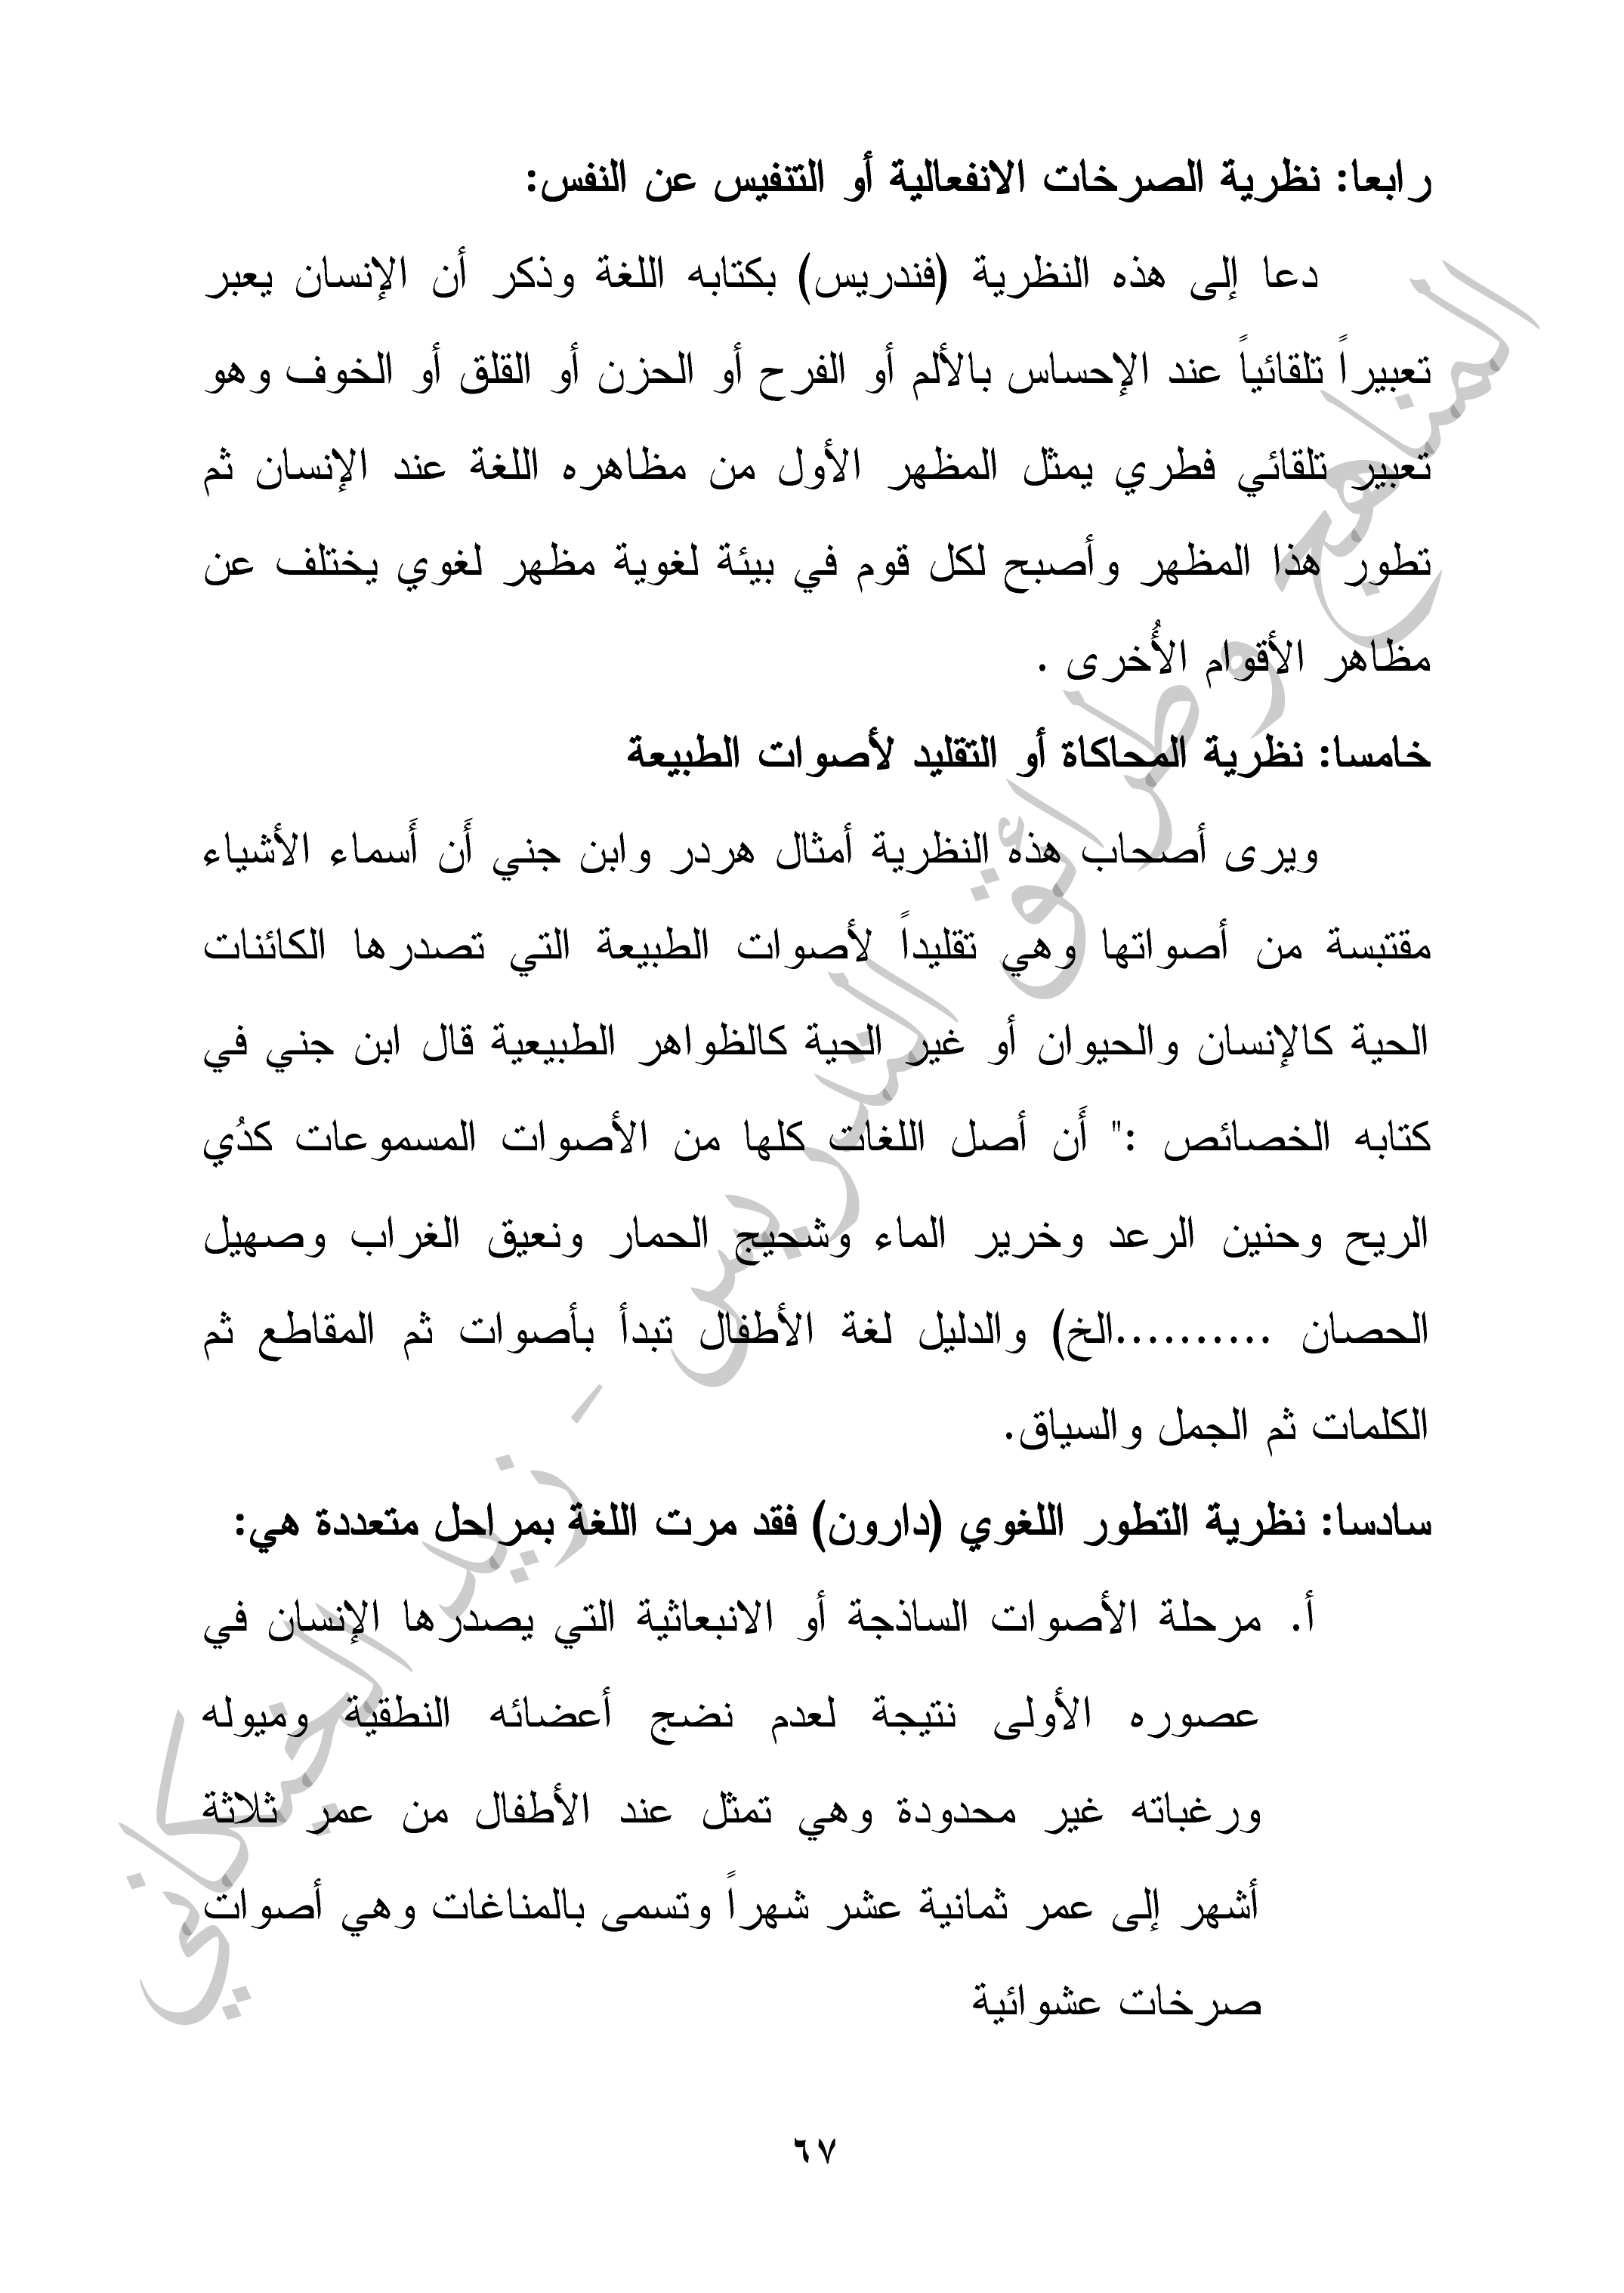 رابعا: نظرية الصرخات الانفعالية أو التنفيس عن النفس:
دعا إلى هذه النظرية (فندريس) بكتابه اللغة وذكر أن الإنسان يعبر
تعبيراً تلقائياً عند الإحساس بالألم أو الفرح أو الحزن أو القلق أو الخوف وهو
تعبير تلقائي فطري يمثل المظهر الأول من مظاهره اللغة عند الإنسان ثم
تطور هذا المظهر وأصبح لكل قوم في بيئة لغوية مظهر لغوي يختلف عن
مظاهر الأقوام الأُخرى .
خامسا: نظرية المحاكاة أو التقليد لأصوات الطبيعة
ويرى أصحاب هذه النظرية أمثال هردر وابن جني أَن أَسماء الأشياء
مقتبسة من أصواتها وهي تقليداً لأصوات الطبيعة التي تصدرها الكائنات
الحية كالإنسان والحيوان أو غير الحية كالظواهر الطبيعية قال ابن جني في
كتابه الخصائص :" أَن أصل اللغات كلها من الأصوات المسموعات كدُي
الريح وحنين الرعد وخرير الماء وشحيج الحمار ونعيق الغراب وصهيل
الحصان ..........الخ) والدليل لغة الأطفال تبدأ بأصوات ثم المقاطع ثم
الكلمات ثم الجمل والسياق.
سادسا: نظرية التطور اللغوي (دارون) فقد مرت اللغة بمراحل متعددة هي:
أ. مرحلة الأصوات الساذجة أو الانبعاثية التي يصدرها الإنسان في
عصوره الأولى نتيجة لعدم نضج أعضائه النطقية وميوله
ورغباته غير محدودة وهي تمثل عند الأطفال من عمر ثلاثة
أشهر إلى عمر ثمانية عشر شهراً وتسمى بالمناغات وهي أصوات
صرخات عشوائية
٦٧
المناهج وطرائق التدريس - زيد الخيكاني